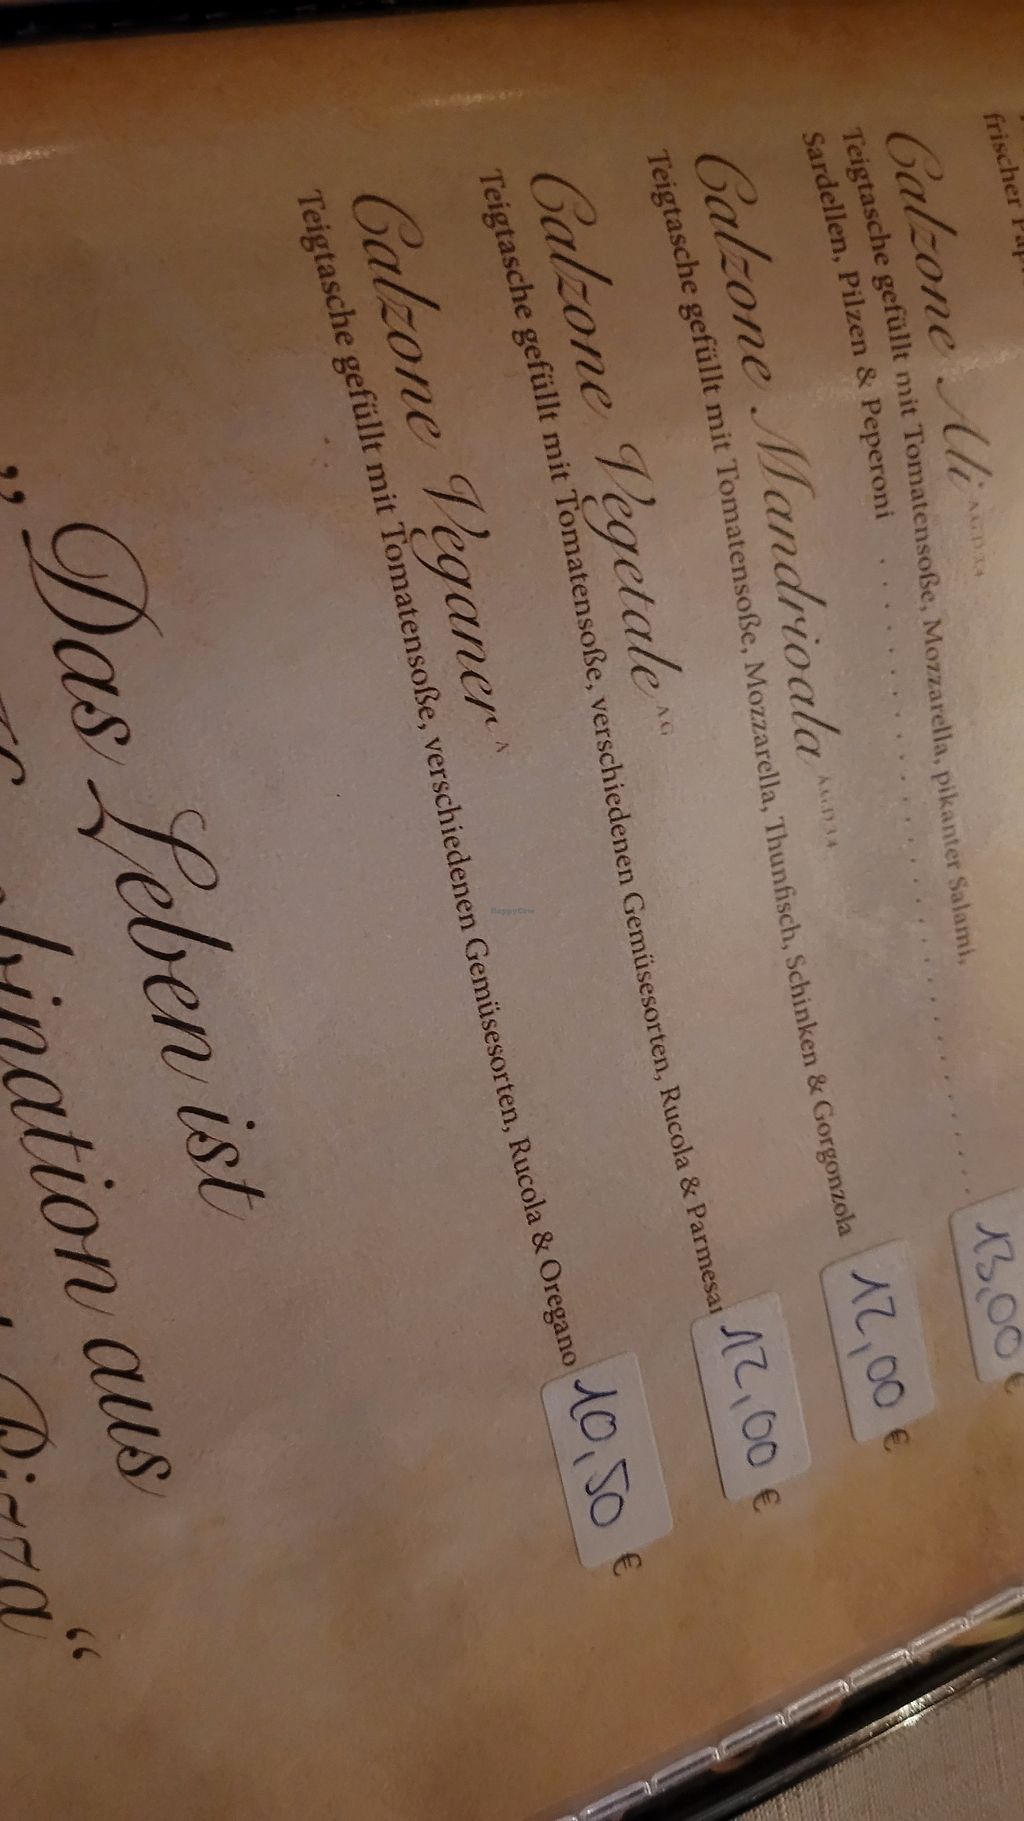 frischer
Calzone Ali A,G,D,3,4
Teigtasche gefüllt mit Tomatensoße, Mozzarella, pikanter Salami,
Sardellen, Pilzen & Peperoni . . . . . . . . . . . . . . . . . . . . 13,00 €
Calzone Mandrioala A,G,D,3,4
Teigtasche gefüllt mit Tomatensoße, Mozzarella, Thunfisch, Schinken & Gorgonzola 12,00 €
Calzone Vegetale A,G
Teigtasche gefüllt mit Tomatensoße, verschiedenen Gemüsesorten, Rucola & Parmesan 12,00 €
Calzone Veganer A
Teigtasche gefüllt mit Tomatensoße, verschiedenen Gemüsesorten, Rucola & Oregano 10,50 €
„Das Leben ist
bination aus
Pizza“
HappyCow